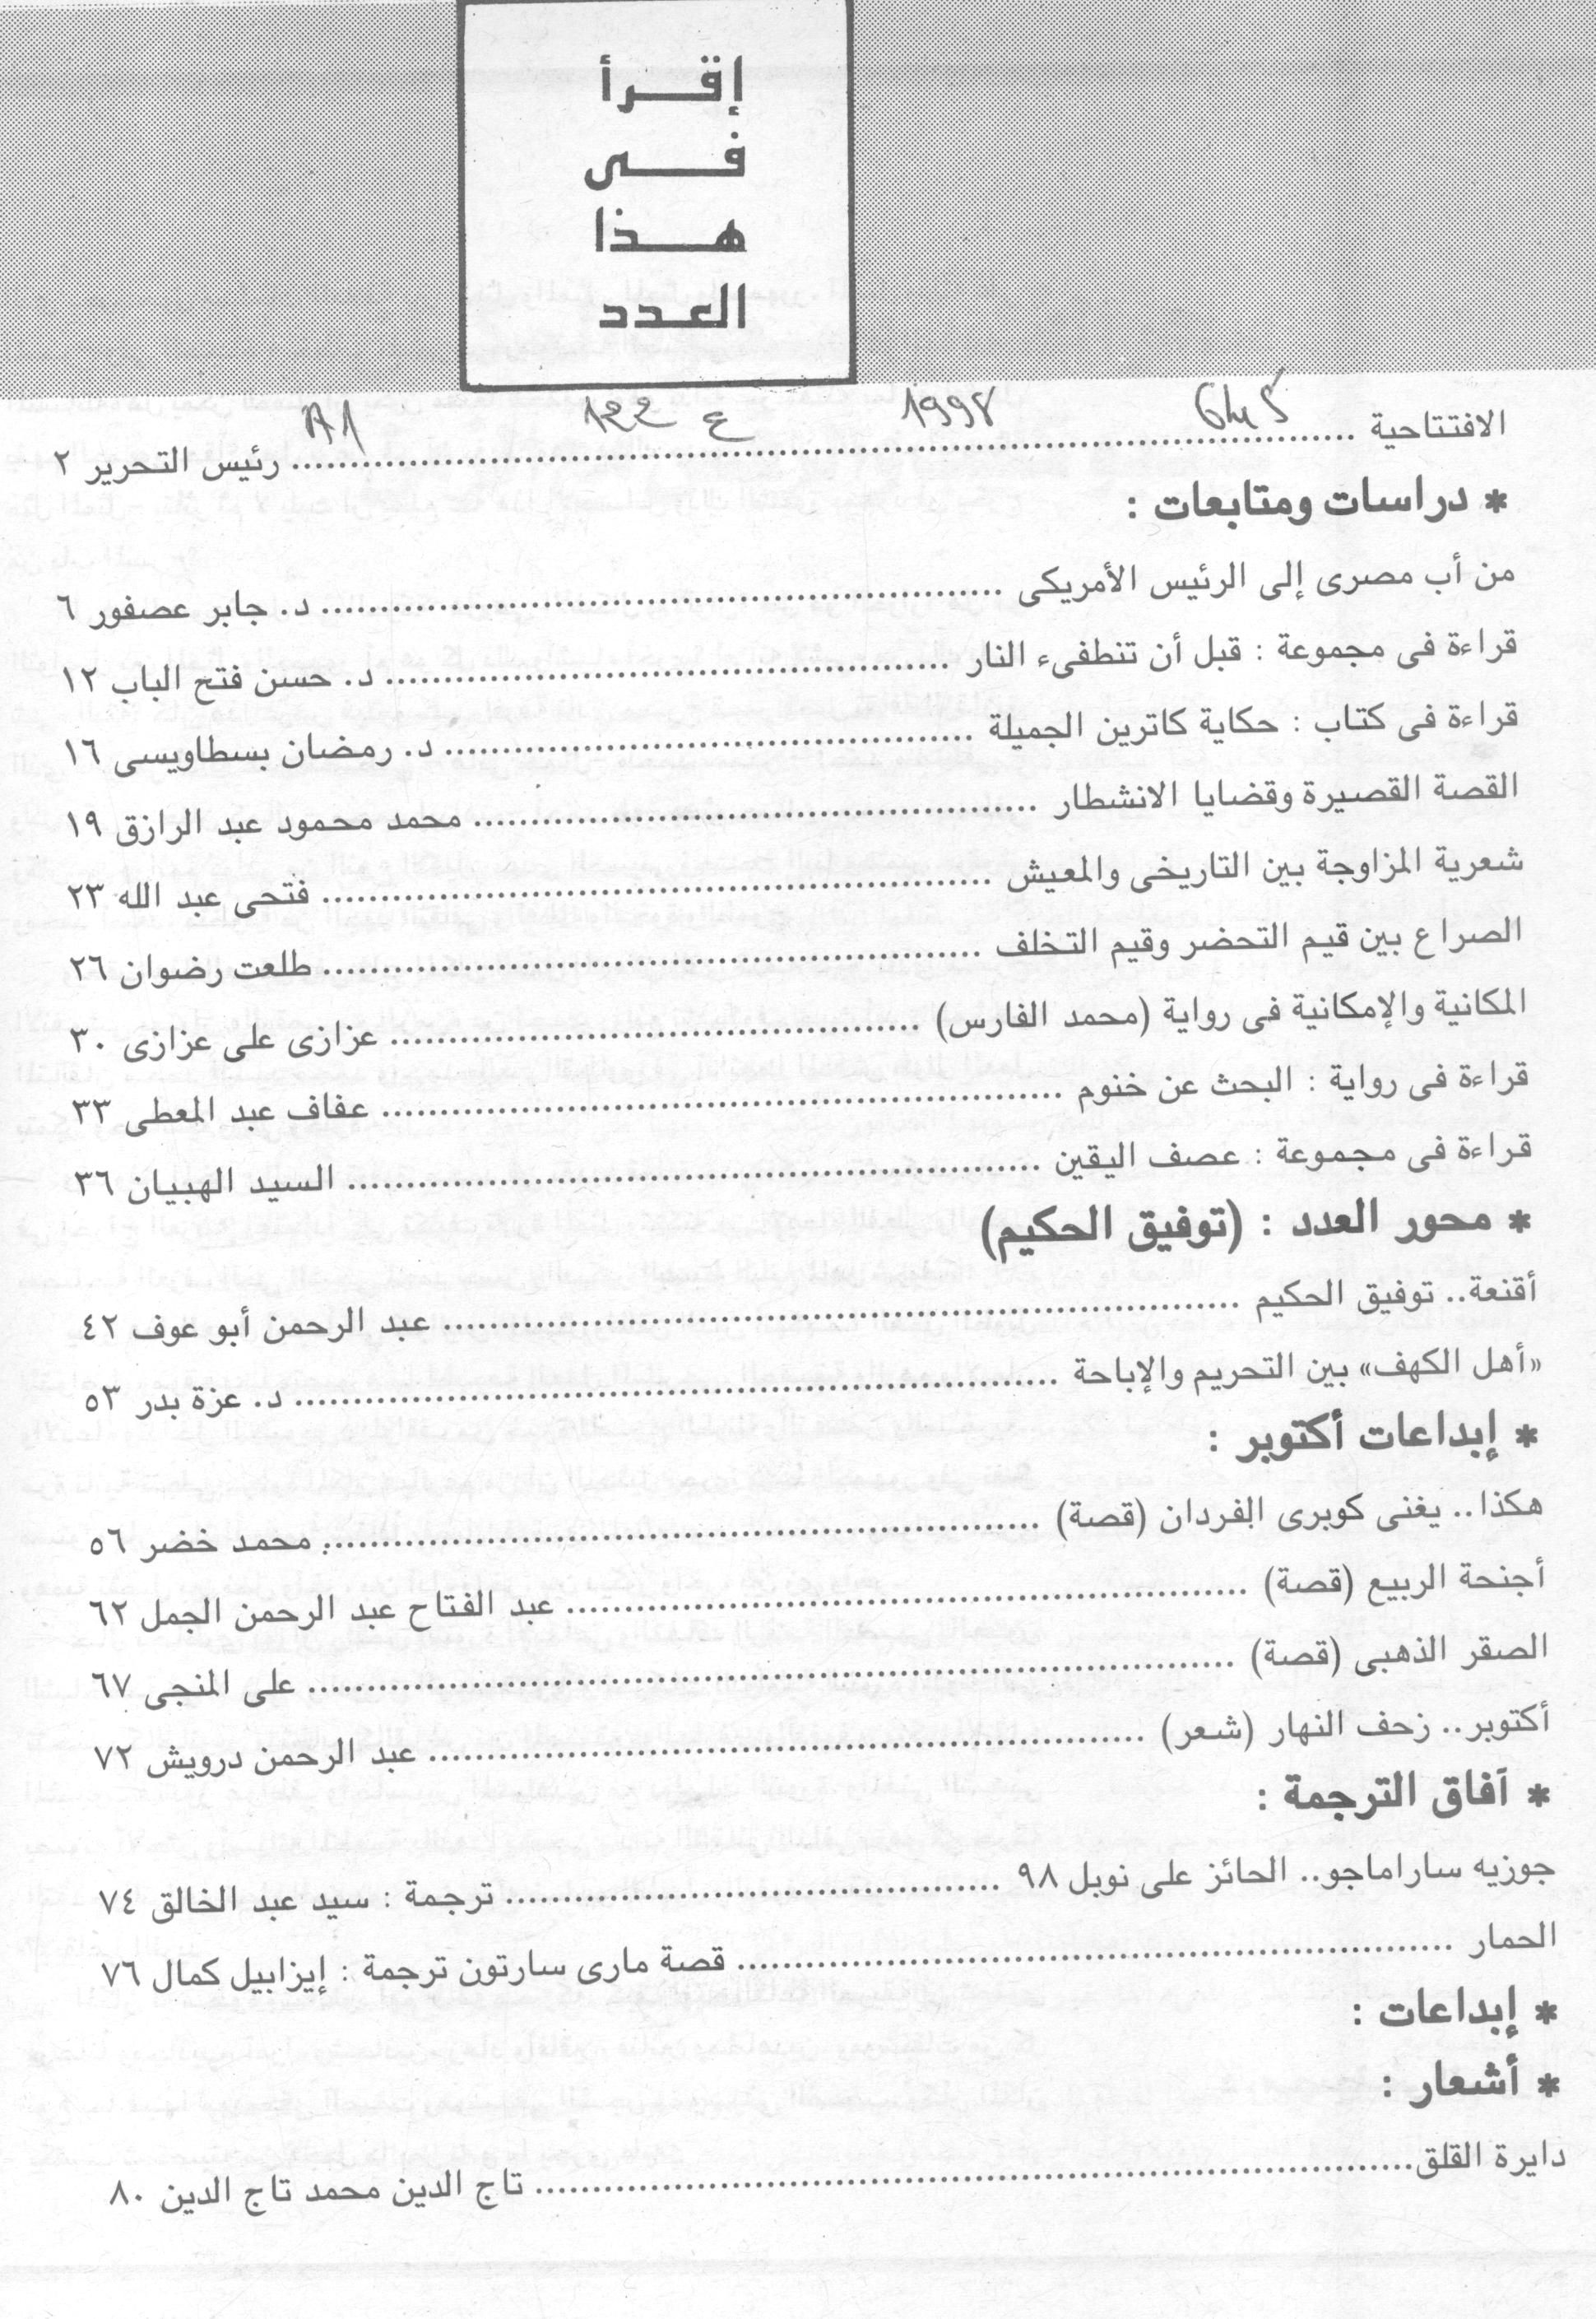 إقرأ
فى
هذا
العدد
1998 ع 122
الافتتاحية ........ رئيس التحرير ٢
* دراسات ومتابعات :
من أب مصرى إلى الرئيس الأمريكى ........ د. جابر عصفور ٦
قراءة فى مجموعة : قبل أن تنطفىء النار ........ د. حسن فتح الباب ١٢
قراءة فى كتاب : حكاية كاترين الجميلة ........ د. رمضان بسطاويسى ١٦
القصة القصيرة وقضايا الانشطار ........ محمد محمود عبد الرازق ١٩
شعرية المزاوجة بين التاريخى والمعيش ........ فتحى عبد الله ٢٣
الصراع بين قيم التحضر وقيم التخلف ........ طلعت رضوان ٢٦
المكانية والإمكانية فى رواية (محمد الفارس) ........ عزازى على عزازى ٣٠
قراءة فى رواية : البحث عن خنوم ........ عفاف عبد المعطى ٣٣
قراءة فى مجموعة : عصف اليقين ........ السيد الهبيان ٣٦
* محور العدد : (توفيق الحكيم)
أقنعة.. توفيق الحكيم ........ عبد الرحمن أبو عوف ٤٢
«أهل الكهف» بين التحريم والإباحة ........ د. عزة بدر ٥٣
* إبداعات أكتوبر :
هكذا.. يغنى كوبرى الفردان (قصة) ........ محمد خضر ٥٦
أجنحة الربيع (قصة) ........ عبد الفتاح عبد الرحمن الجمل ٦٢
الصقر الذهبى (قصة) ........ على المنجى ٦٧
أكتوبر.. زحف النهار (شعر) ........ عبد الرحمن درويش ٧٢
* آفاق الترجمة :
جوزيه ساراماجو.. الحائز على نوبل ٩٨ ........ ترجمة : سيد عبد الخالق ٧٤
الحمار ........ قصة مارى سارتون ترجمة : إيزابيل كمال ٧٦
* إبداعات :
* أشعار :
دايرة القلق ........ تاج الدين محمد تاج الدين ٨٠